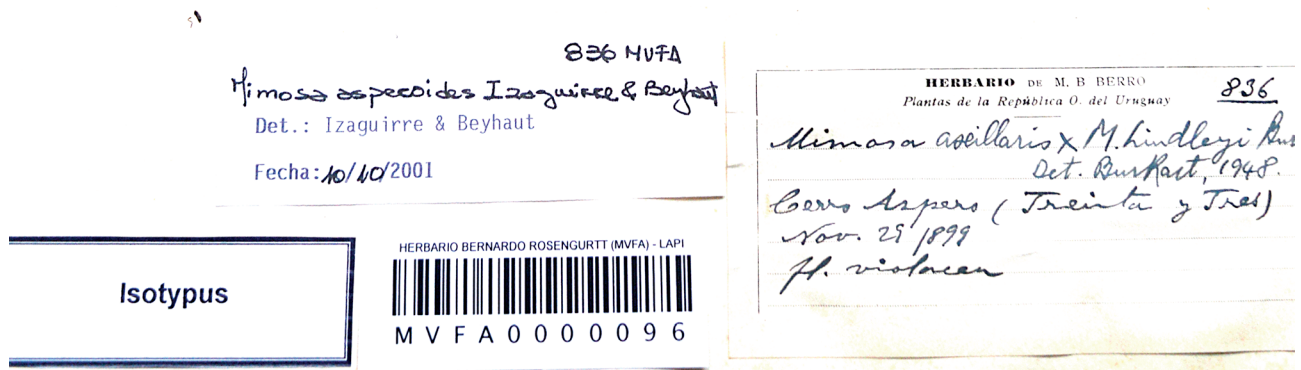 836 MVFA
Mimosa asperoides Izaguirre & Beyhaut
Det.: Izaguirre & Beyhaut
Fecha: 10/10/2001
Isotypus
HERBARIO BERNARDO ROSENGURTT (MVFA) - LAPI
MVFA0000096
HERBARIO DE M. B BERRO
836
Plantas de la República O. del Uruguay
Mimosa axillaris x M. Lindleyi
Det. Burkart, 1948.
Cerro Aspero (Treinta y Tres)
Nov. 29 1899
fl. violacea